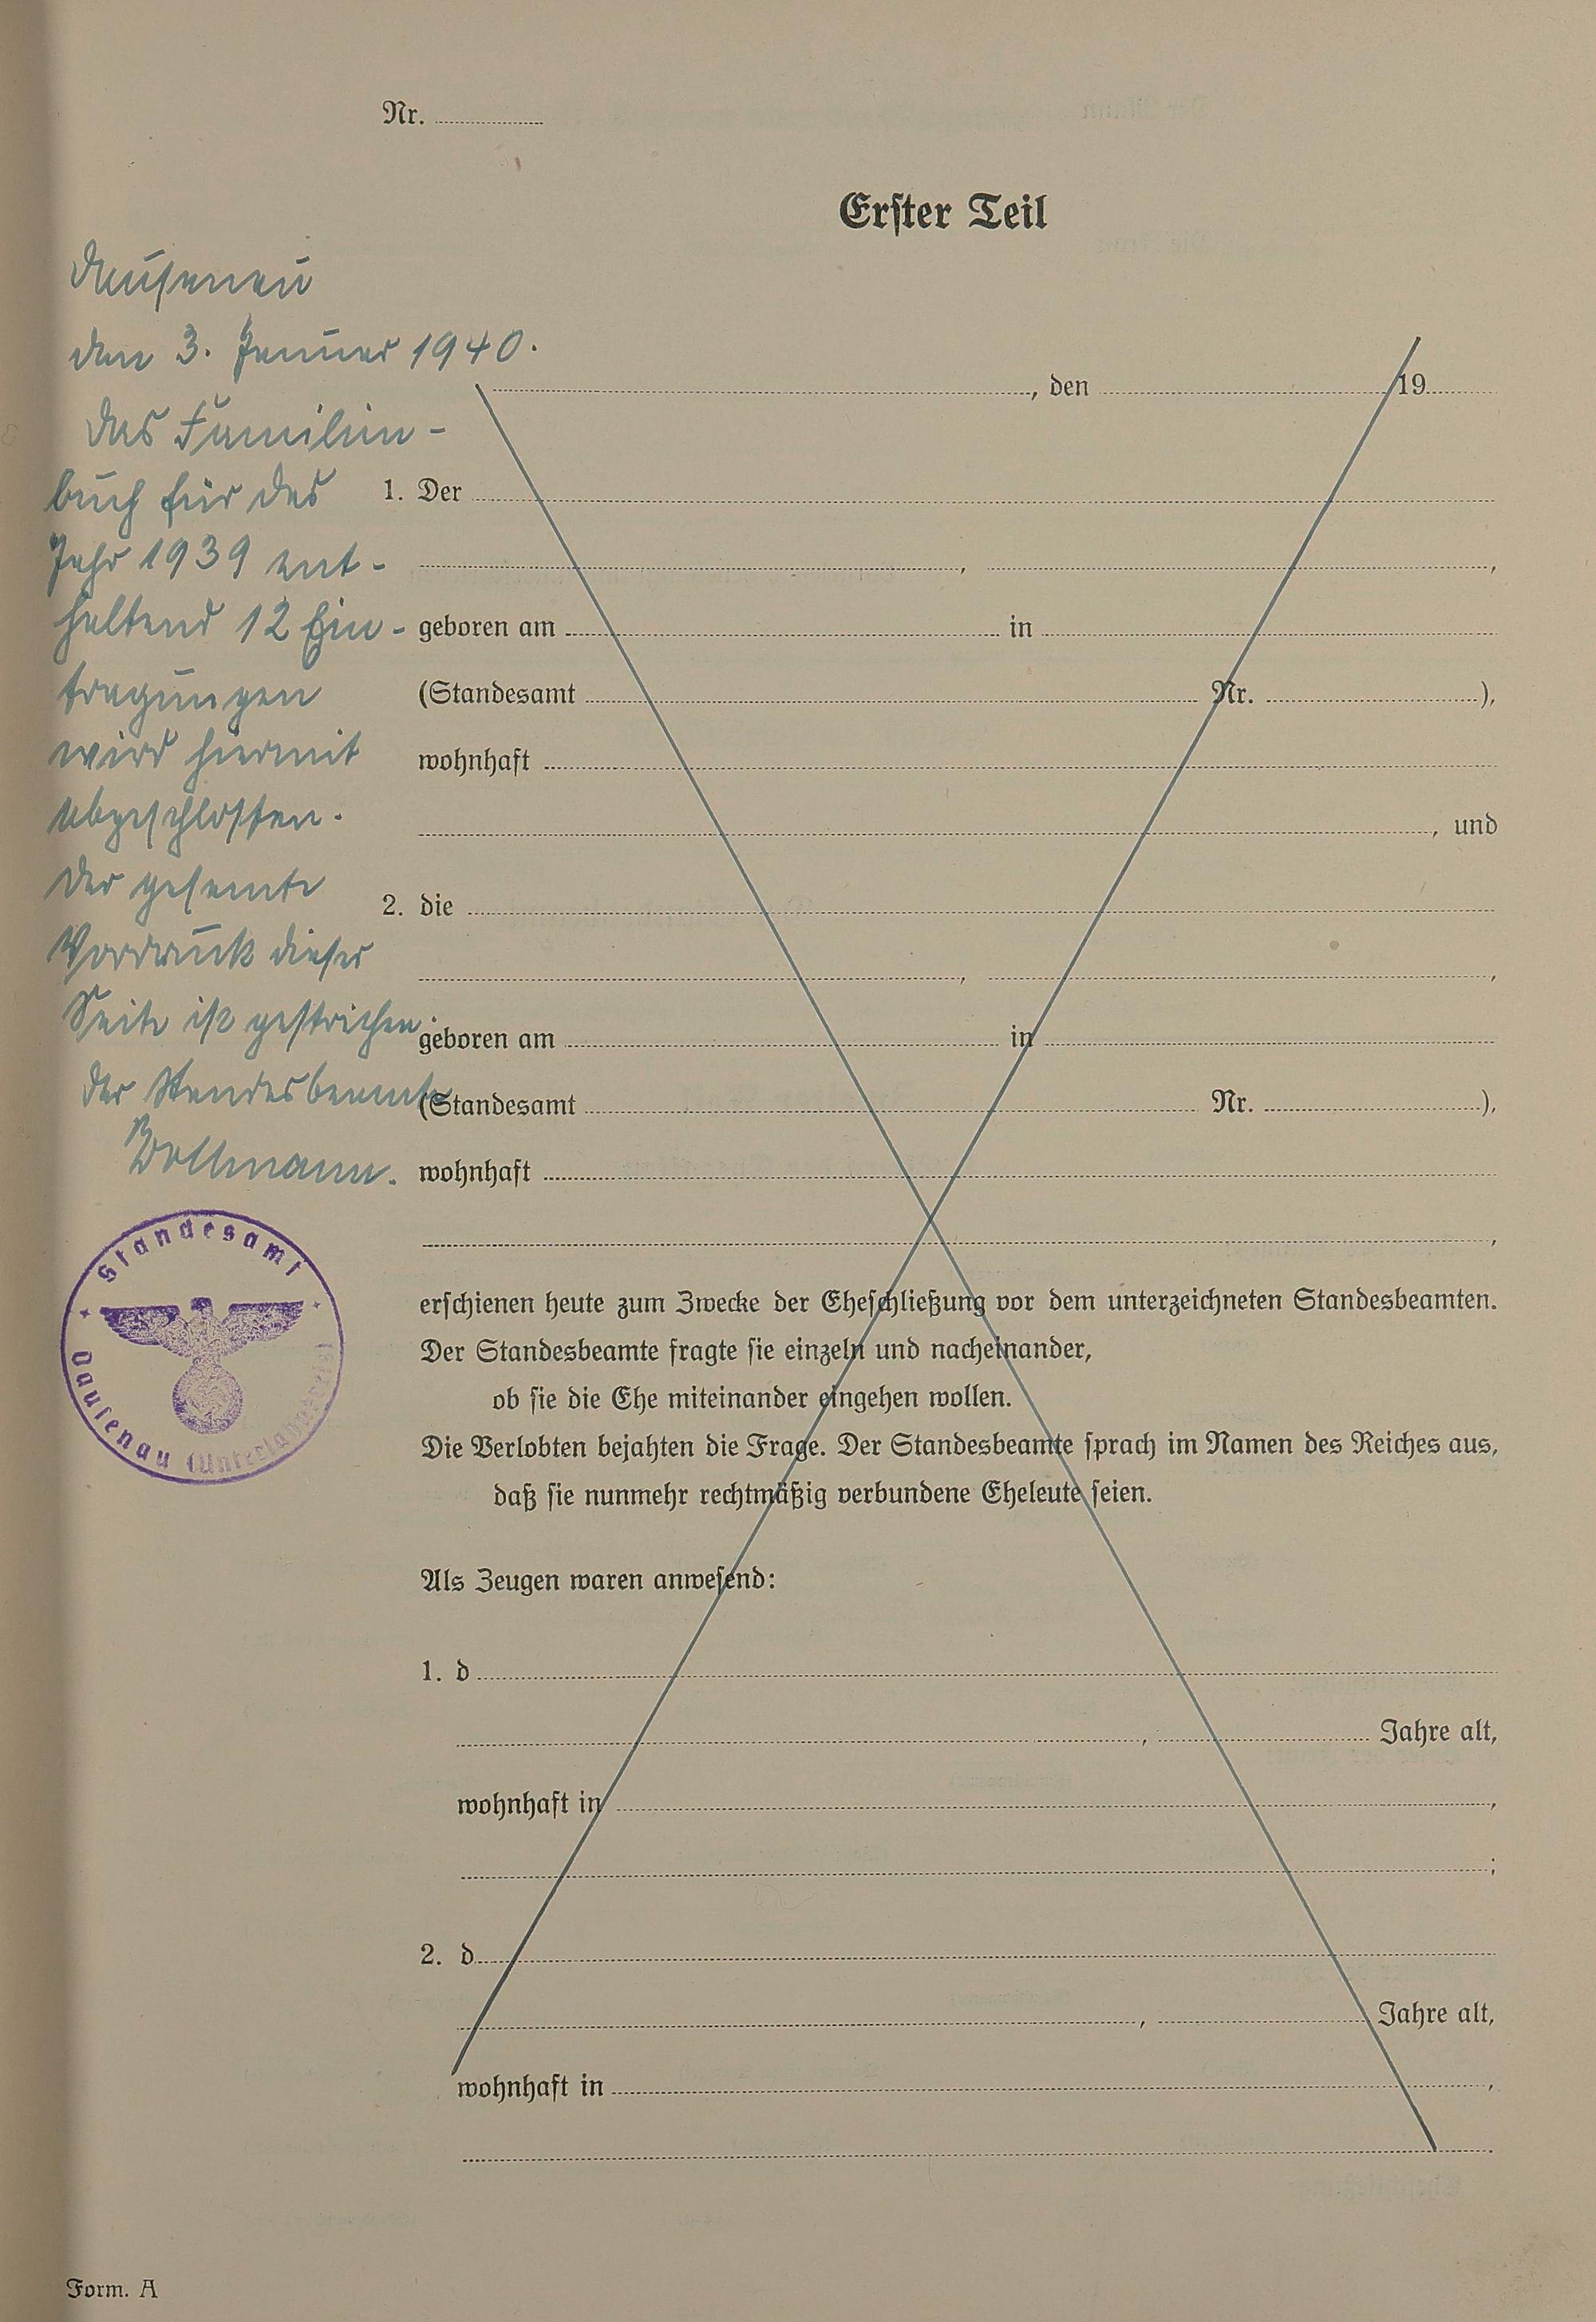 Nr.
Erster Teil
Dausenau
den 3. Januar 1940.
Das Familien-
buch für das
Jahr 1939 ent-
haltend 12 Ein-
tragungen
wird hiermit
abgeschlossen.
Der gesamte
Vordruck dieser
Seite ist gestrichen.
Der Standesbeamte
Bollmann.
Standesamt
Dausenau (Unterlahnkreis)
, den 19
1. Der
, ,
geboren am in
(Standesamt Nr. ),
wohnhaft
, und
2. die
, ,
geboren am in
(Standesamt Nr. ),
wohnhaft
,
erschienen heute zum Zwecke der Eheschließung vor dem unterzeichneten Standesbeamten.
Der Standesbeamte fragte sie einzeln und nacheinander,
ob sie die Ehe miteinander eingehen wollen.
Die Verlobten bejahten die Frage. Der Standesbeamte sprach im Namen des Reiches aus,
daß sie nunmehr rechtmäßig verbundene Eheleute seien.
Als Zeugen waren anwesend:
1. d
, Jahre alt,
wohnhaft in ,
;
2. d
, Jahre alt,
wohnhaft in ,
.
Form. A